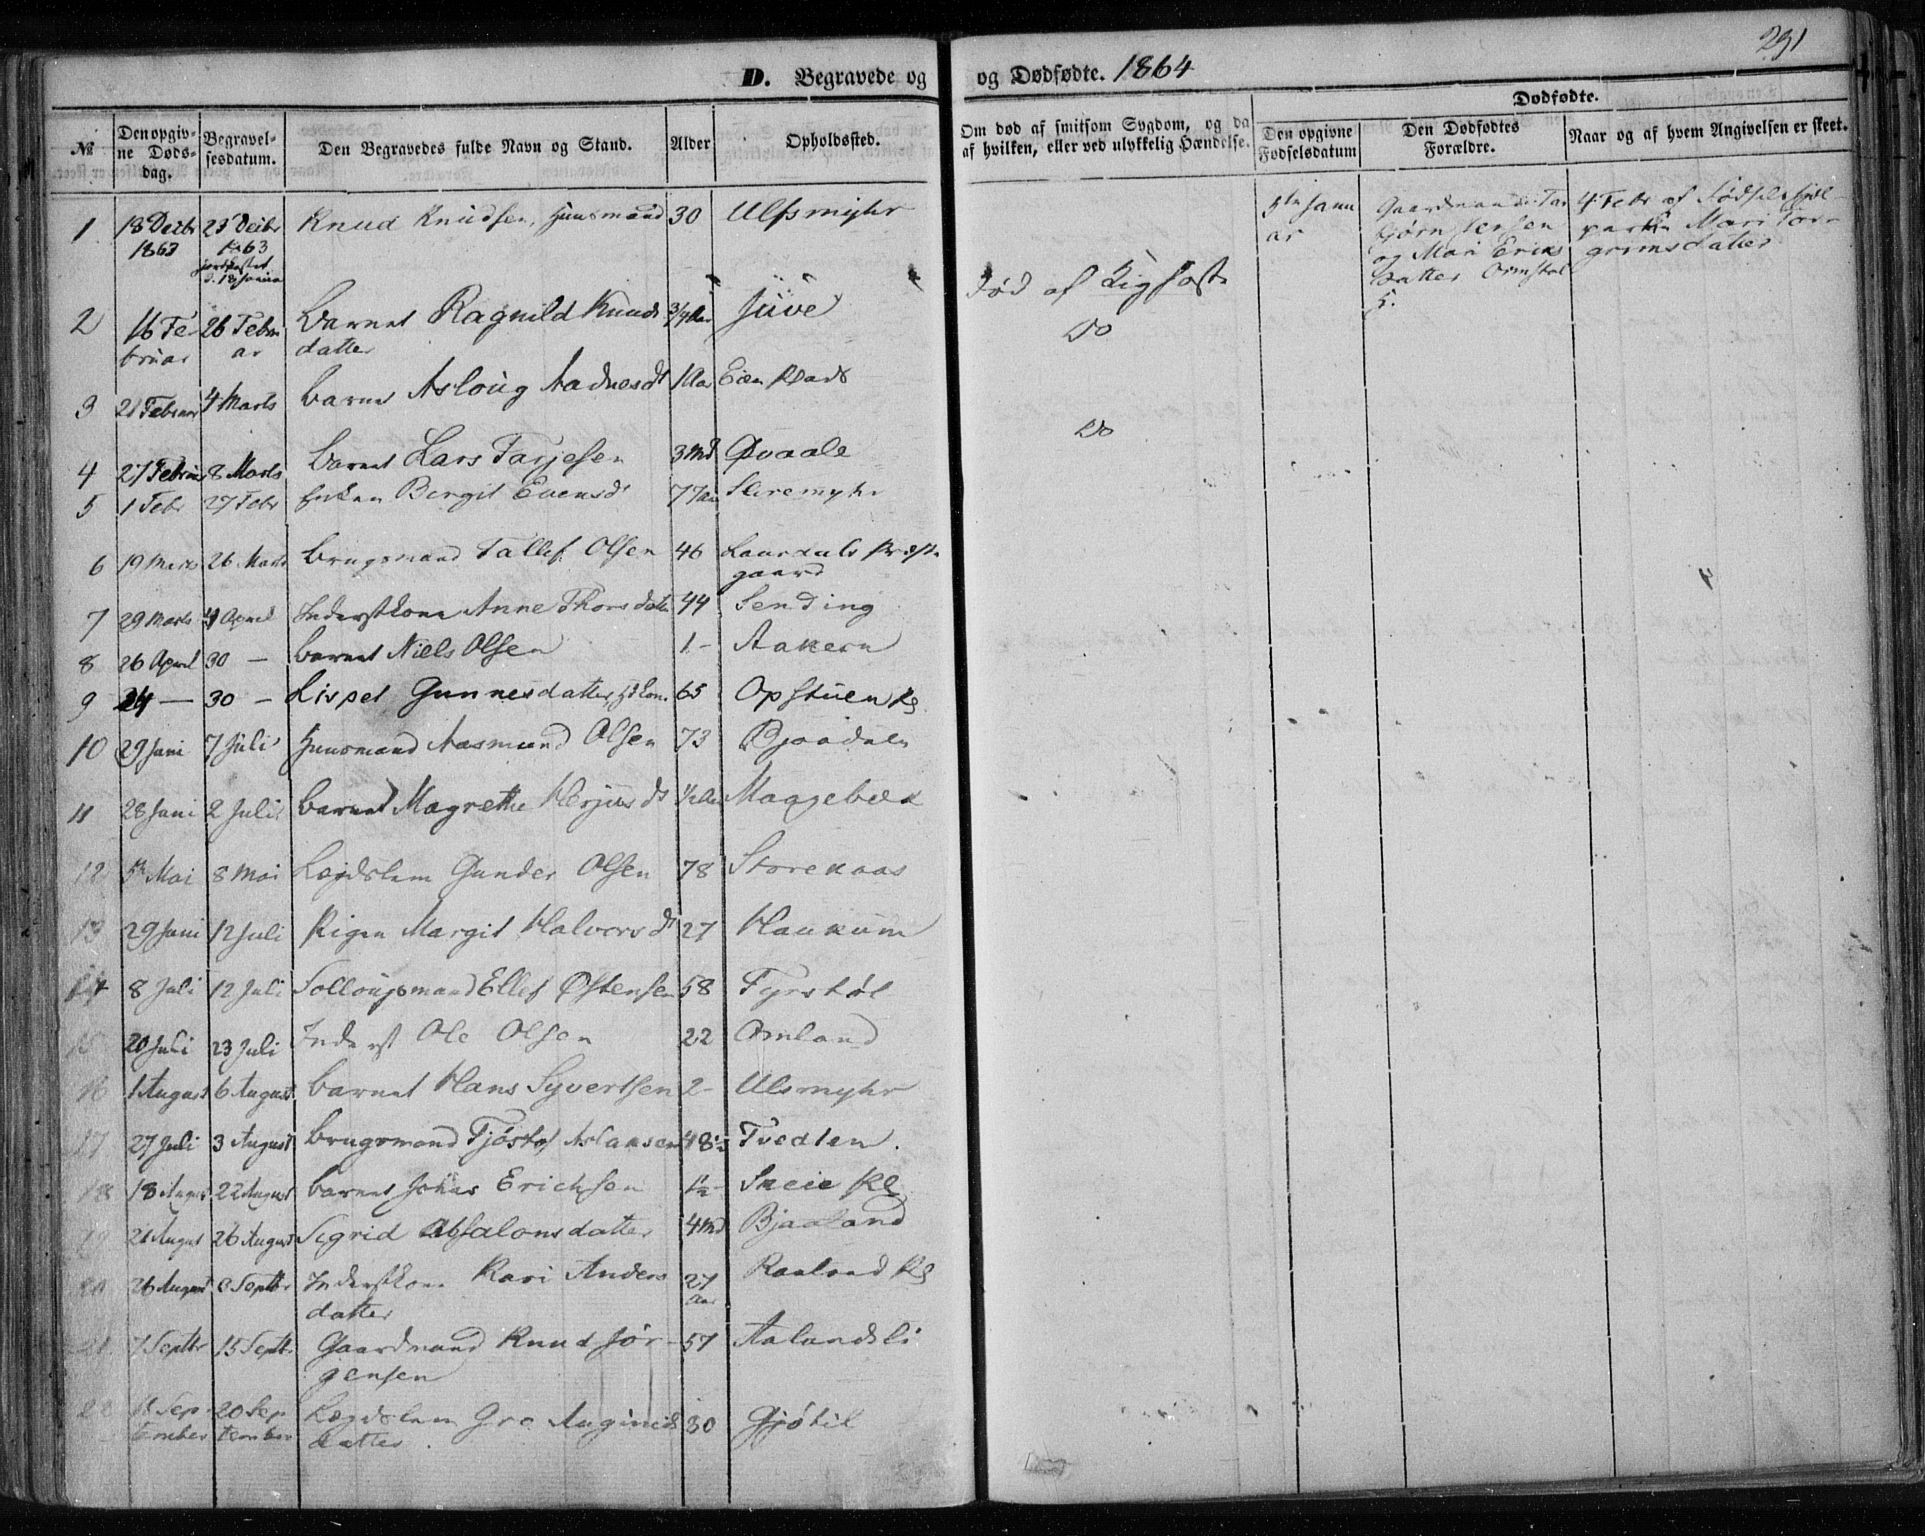 291
D. Begravede og og Dødfødte. 1864
Dødfødte.
№ Den opgivne Dødsdag. Begravelsesdatum. Den Begravedes fulde Navn og Stand. Alder Opholdssted. Om død af smitsom Sygdom, og da af hvilken, eller ved ulykkelig Hændelse. Den opgivne Fødselsdatum Den Dødfødtes Forældre. Naar og af hvem Angivelsen er skeet.
1 18 Decbr 1863 23 Decbr 1863 jordkastet d. 18 Knud Knudsen, Huusmand 30 Ulfsmyhr
5te Januar Gaardmand Tarbjørn og Mari Eriksdatter
4 Febr af Fødselshjelpersken Mari Torgrimsdatter
2 16 Februar 26 Februar Barnet Ragnild Knudsdatter 3/4 Aar Juve død af Kighoste
3 21 Februar 4 Marts Barnet Asloug Aadnesdt 1 Aar Eien Plads Do
4 27 Februar 8 Marts Barnet Lars Tarjesen 3 Md Qvaale Do
5 1 Febr 27 Febr Enken Birgit Evensdt 77 Aar Sliremyhr
6 19 Marts 26 Marts Brugsmand Tallef Olsen 46 Laurdals Præstegaard
7 29 Marts 4 April Inderstkone Anne Thorsdatter 44 Sending
8 26 April 30 — Barnet Niels Olsen 1 – Aakern
9 24 — 30 — Lispet Gunnesdatter, Hskone 65 Opstuen Pl
10 29 Juni 7 Juli Huusmand Aasmund Olsen 73 Bjaadalen
11 28 Juni 2 Juli Barnet Magrethe Herjusdt 1/2 Aar Maagebæk
12 5te Mai 8 Mai Lægdslem Gunder Olsen 78 Storekaas
13 29 Juni 12 Juli Pigen Margit Halvorsdt 27 Haukum
14 8 Juli 12 Juli Follougsmand Ellef Østensen 58 Fyrstøl
15 20 Juli 23 Juli Inderst Ole Olsen 22 Omland
16 1 August 6 August Barnet Hans Syvertsen 2 – Ulsmyhr
17 27 Juli 3 August Brugsmand Tjøstof Aslaksen 48½ Tvedten.
18 18 August 22 August Barnet Johns Erichsen 1½ – Skeie Pl
19 21 August 26 August Sigrid Absalonsdatter 4 Md Bjaaland
20 26 August 6 Septbr Inderstkone Kari Andersdatter 27 Aar Raaland Pl
21 7 Septbr 15 Septbr. Gaardmand Knud Jørgensen 57 Aalandsli
22 11 September 20 September Lægdslem Gro Auginesdatter 30 Gjøtil